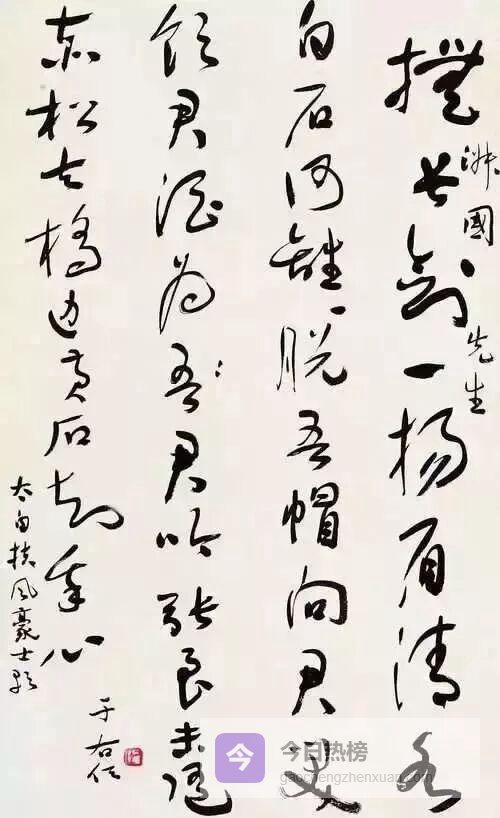 國先生
撫長劍一揚眉清水
白石何離離脱吾帽向君笑
飲君酒為吾君吟張良未隨
赤松去橋邊黄石知我心
太白扶風豪士歌
于右任
今 今日热榜
gaochengzhenxuan.com